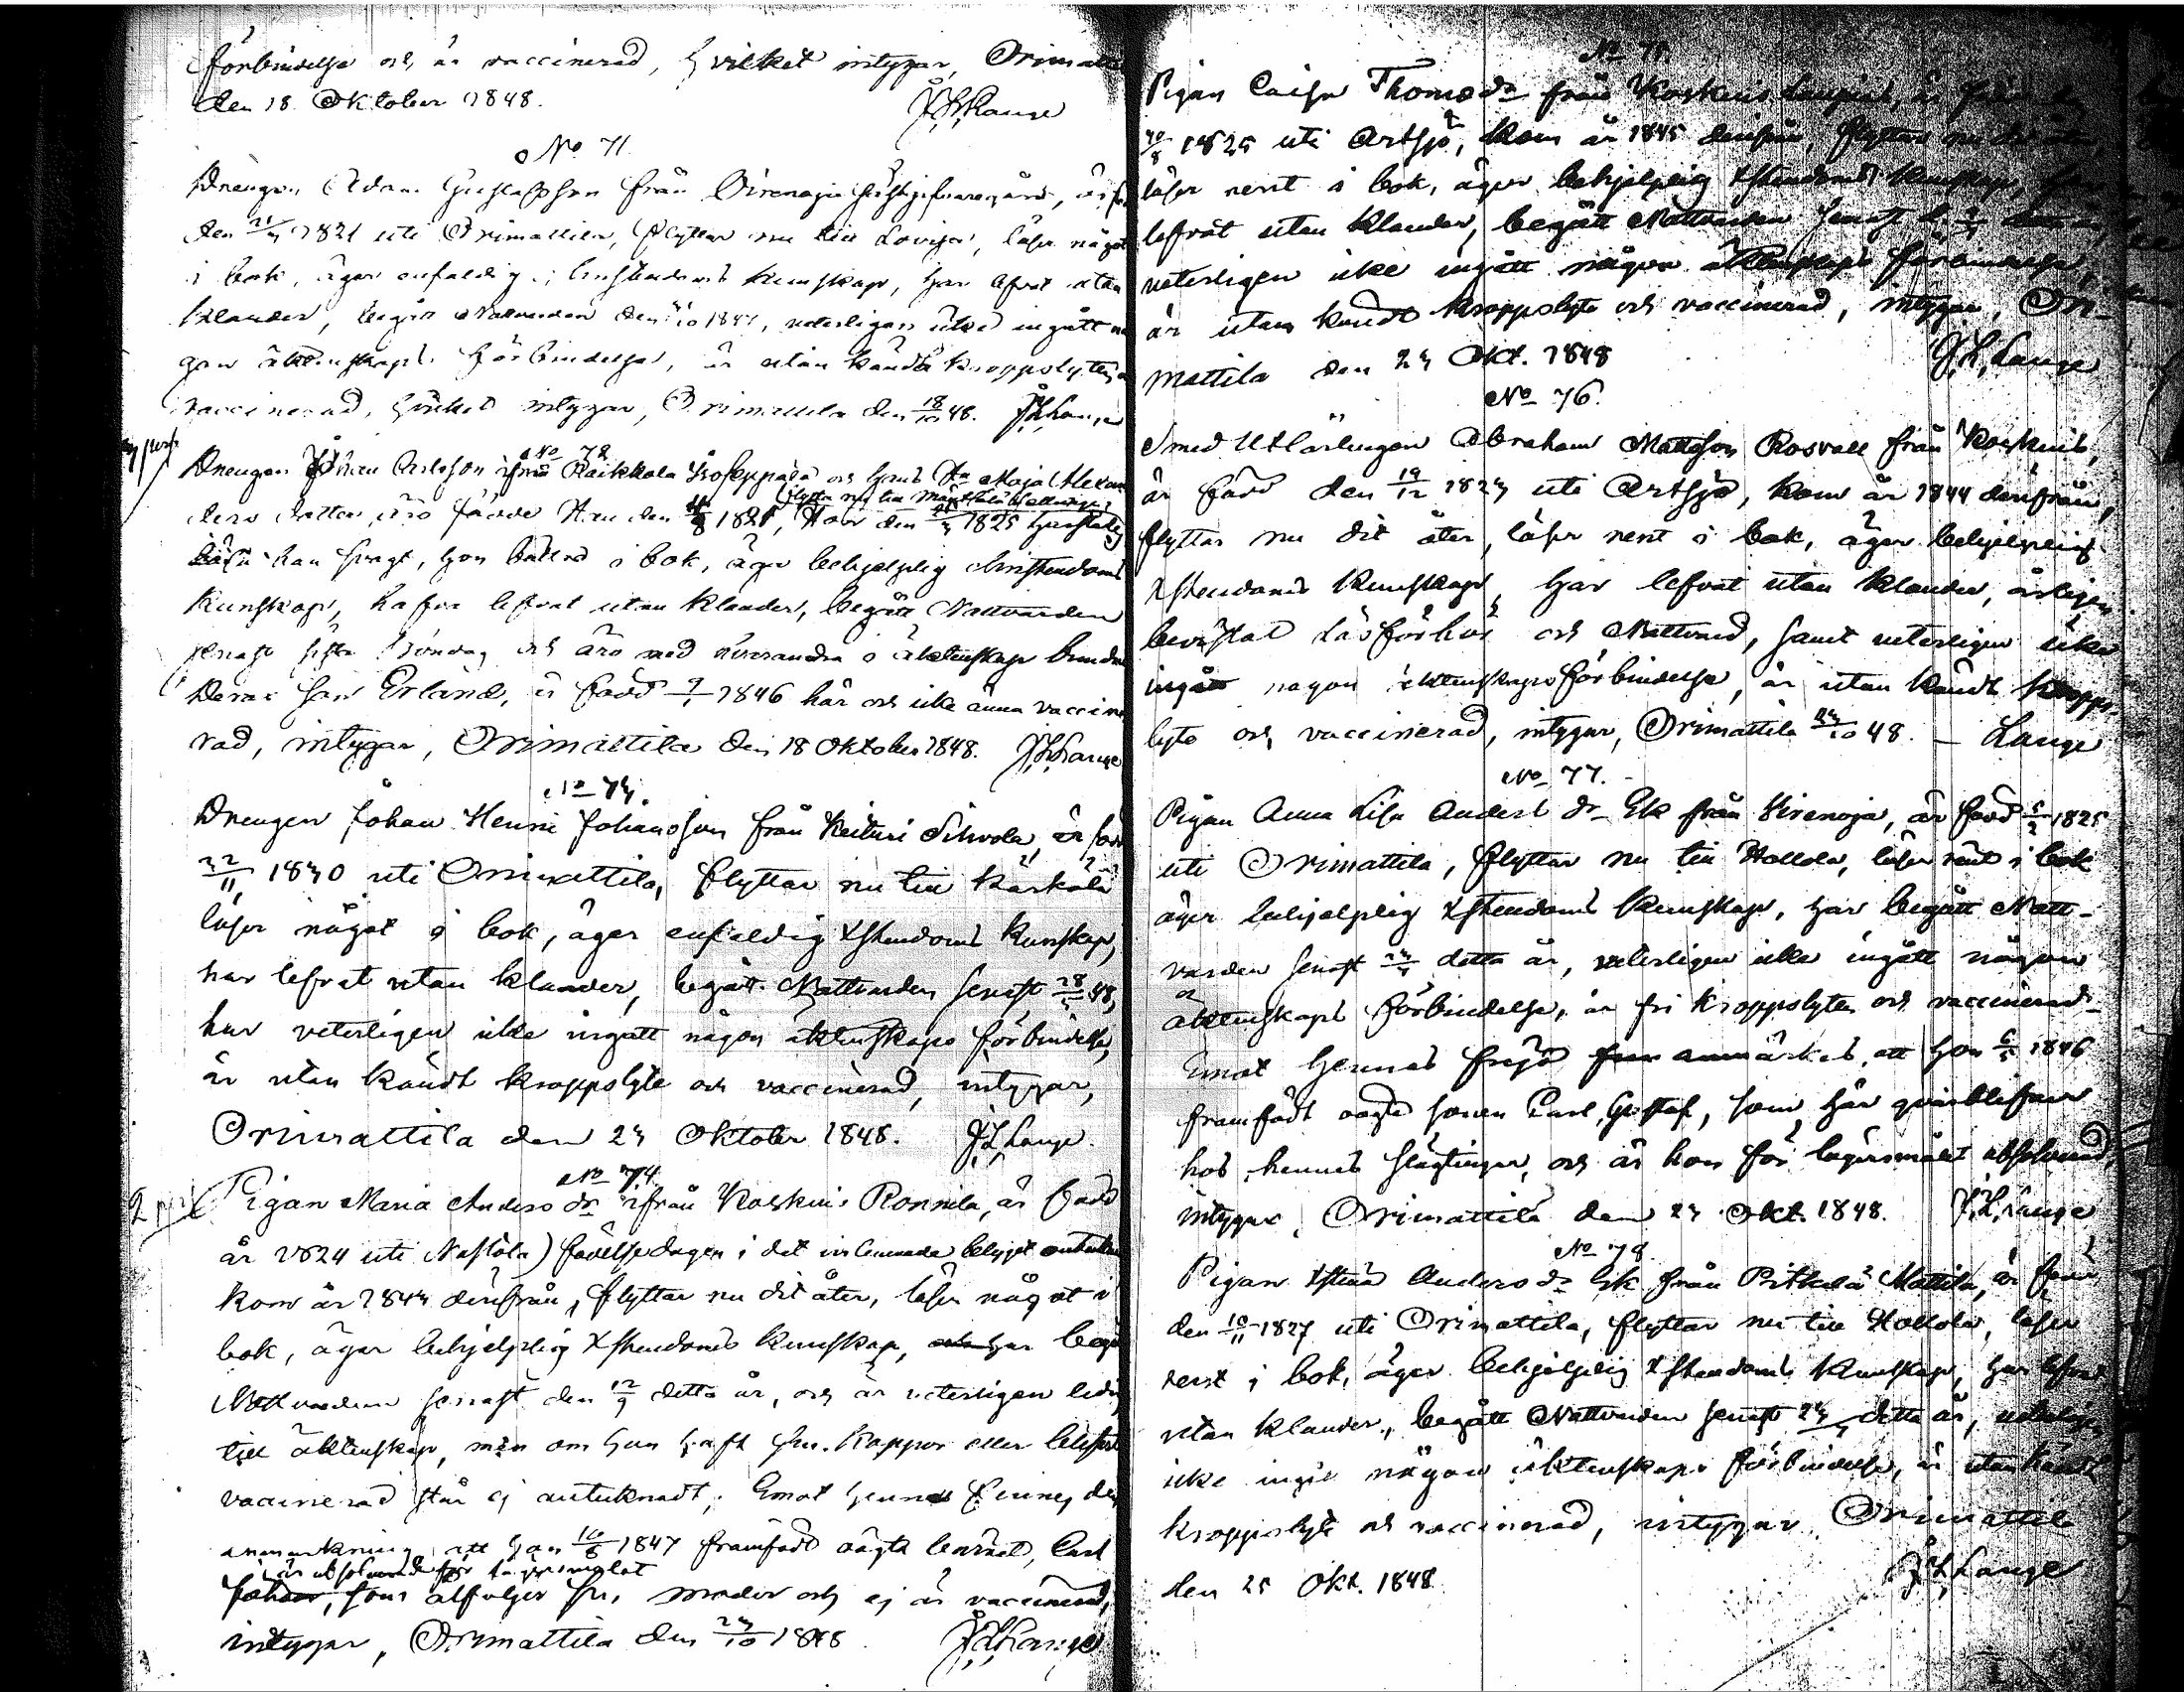 förbindelse och är vaccinerad, hvilket intygar, Orimatt
den 18 Oktober 1848. J.H.Lange
No 71.
Drengen Adam Gustafsson från
den 1821 uti Orimattila, flyttar nu till Lovisa, läser något
i bok, äger enfaldig christendoms kunskap, har lefvat utan
klander, begått Nattvarden den 1847, veterligen icke ingått nå
gon äktenskaps förbindelse, är utan kändt kroppslyte,
vaccinerad, hvilket intygar, Orimattila den 18/10 48. J.H.Lange
No 72
Drengen Johan Carlsson ifrån Räikkälä och hans Hu Maja Alexan
flytta nu till
ders dotter, äro födde Han den 1821, Hon den 1825
läser han svagt, hon bättre i bok, äga behjelplig christendoms
kunskap, hafva lefvat utan klander, begått Nattvarden
senast sista söndag och äro med hvarandra i äktenskap bundne
Deras son Erland, är född 1846 här och icke ännu vaccine
rad, intygar, Orimattila den 18 Oktober 1848. J.H.Lange
No 73.
Drengen Johan Henric Johansson från Keituri Sihvola, är född
22/11 1830 uti Orimattila, flyttar nu till Kärkölä
läser något i bok, äger enfaldig Xstendoms kunskap,
har lefvat utan klander, begått Nattvarden senast 28 48,
har veterligen icke ingått någon äktenskaps förbindelse,
är utan kändt kroppslyte och vaccinerad, intygar,
Orimattila den 23 Oktober 1848. J.H.Lange.
No 74.
Pigan Maria Anders dr ifrån Koskus Ronnila, är född
år 1824 uti Nastola) födelsedagen i det inlemnade betyget
kom år 1843 derifrån, flyttar nu dit åter, läser något i
bok, äger behjelplig Xstendoms kunskap, har begå
Nattvarden senast den 12/9 detta år, och är veterligen ledig
till äktenskap, men om hon haft sm. koppor eller blifvit
vaccinerad står ej antecknadt; Emot hennes finnes den
anmärkning, att hon 16/8 1847 framfödt oägta barnet, Carl
är absolverad för lägersmålet
Johan, som åtföljer sin moder och ej är vaccinerad,
intygar, Orimattila den 23/10 1848 J.H.Lange
No 75.
Pigan Caisa Thomæ dr från Koskus
1825 uti Artsjö, kom år 1845 derifrån, flyttar nu
läser rent i bok, äger behjelplig Xstendoms kunskap,
lefvat utan klander, begått Nattvarden senast
veterligen icke ingått någon äktenskaps förbindelse,
är utan kändt kroppslyte och vaccinerad, intygar, Ori-
mattila den 23 Okt. 1848 J.H.Lange
No 76.
Smed Utlärlingen Abraham Mattsson Rosvall från Koskus,
är född den 19/12 1823 uti Artsjö, kom år 1844 derifrån,
flyttar nu dit åter, läser rent i bok, äger behjelplig
Xstendoms kunskap, har lefvat utan klander, årligen
bevistat Läsförhör och Nattvard, samt veterligen icke
ingått någon äktenskaps förbindelse, är utan kändt kropps-
lyte och vaccinerad, intygar, Orimattila 23/10 48. — Lange
No 77.
Pigan Anna Lisa Anders dr Ek från Virenoja, är född 1825
uti Orimattila, flyttar nu till Hollola, läser rent i bok
äger behjelplig Xstendoms kunskap, har begått Natt-
varden senast detta år, veterligen icke ingått någon
äktenskaps förbindelse, är fri kroppslyten och vaccinerad
Emot hennes frejd anmärkes, att hon 1846
framfödt oägta sonen Carl Gustaf, som här qvarblifver
hos hennes slägtingar, och är hon för lägersmålet absolverad,
intygar, Orimattila den 23 Okt. 1848. J.H.Lange
No 78.
Pigan Xstina Anders dr Ek från Pitkälä Mattila, är född
den 10/11 1827 uti Orimattila, flyttar nu till Hollola, läser
rent i bok, äger behjelplig Xstendoms kunskap, har lefvat
utan klander, begått Nattvarden senast detta år, veterligen
icke ingått någon äktenskaps förbindelse, är utan kändt
kroppslyte och vaccinerad, intygar Orimattila
den 25 Okt. 1848 J.H.Lange